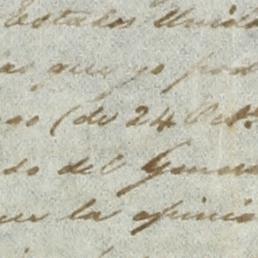 Estados Unido
as, que yo pod
so (de 24 Octe
do del Gene
uer la opinio